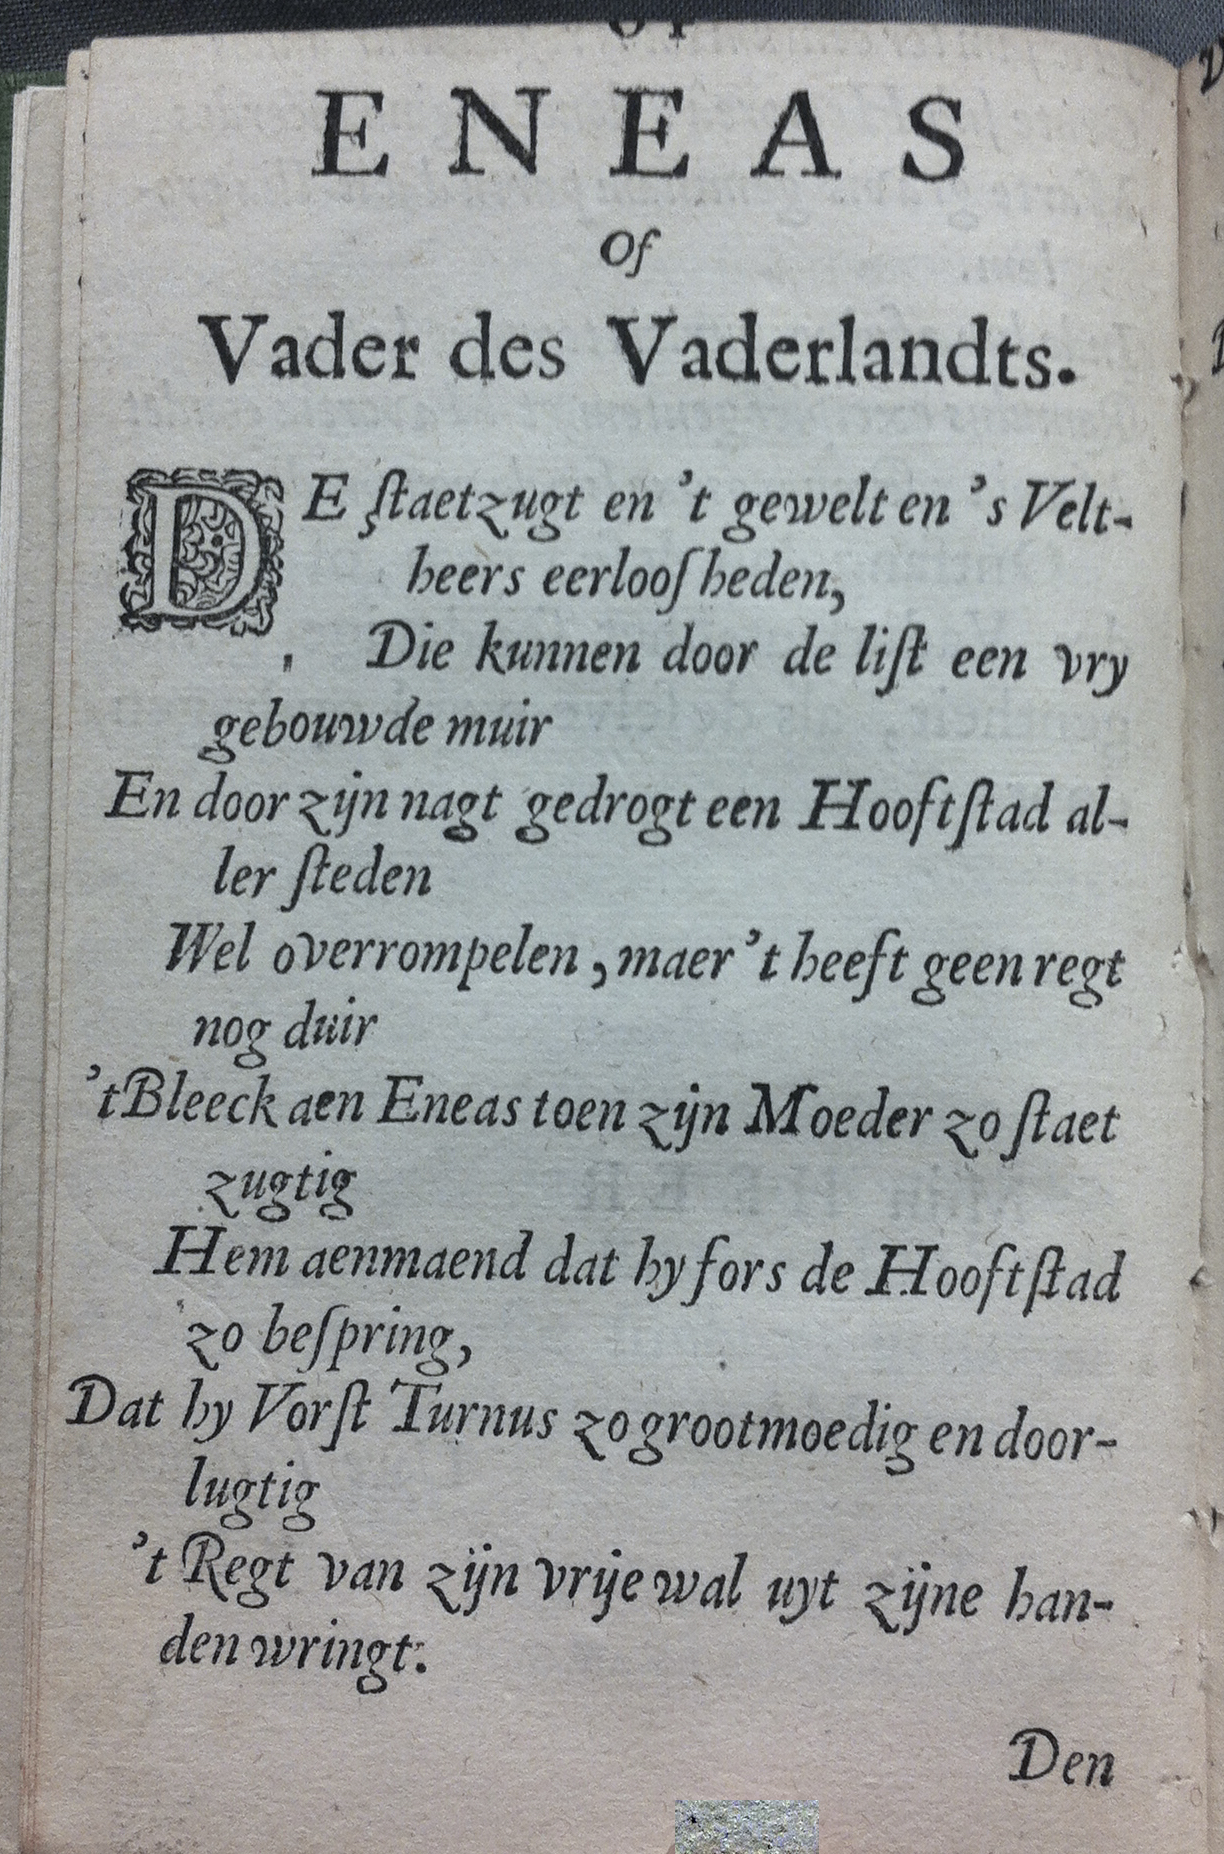 ENEAS
Of
Vader des Vaderlandts.
DE ſtaetzugt en 't gewelt en 's Velt-
heers eerlooſheden,
Die kunnen door de liſt een vry
gebouwde muir
En door zijn nagt gedrogt een Hooftſtad al-
ler ſteden
Wel overrompelen, maer 't heeft geen regt
nog duir
't Bleeck aen Eneas toen zijn Moeder zo ſtaet
zugtig
Hem aenmaend dat hy fors de Hooftſtad
zo beſpring,
Dat hy Vorſt Turnus zo grootmoedig en door-
lugtig
't Regt van zijn vrije wal uyt zijne han-
den wringt.
Den